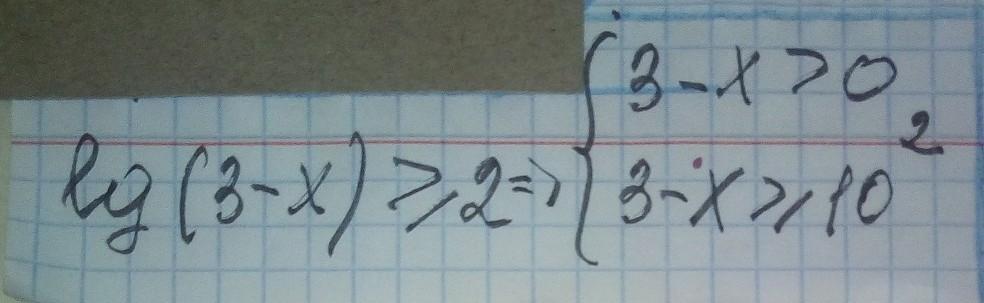 lg(3-x) ⩾ 2 => { 3-x > 0
3-x ⩾ 10²